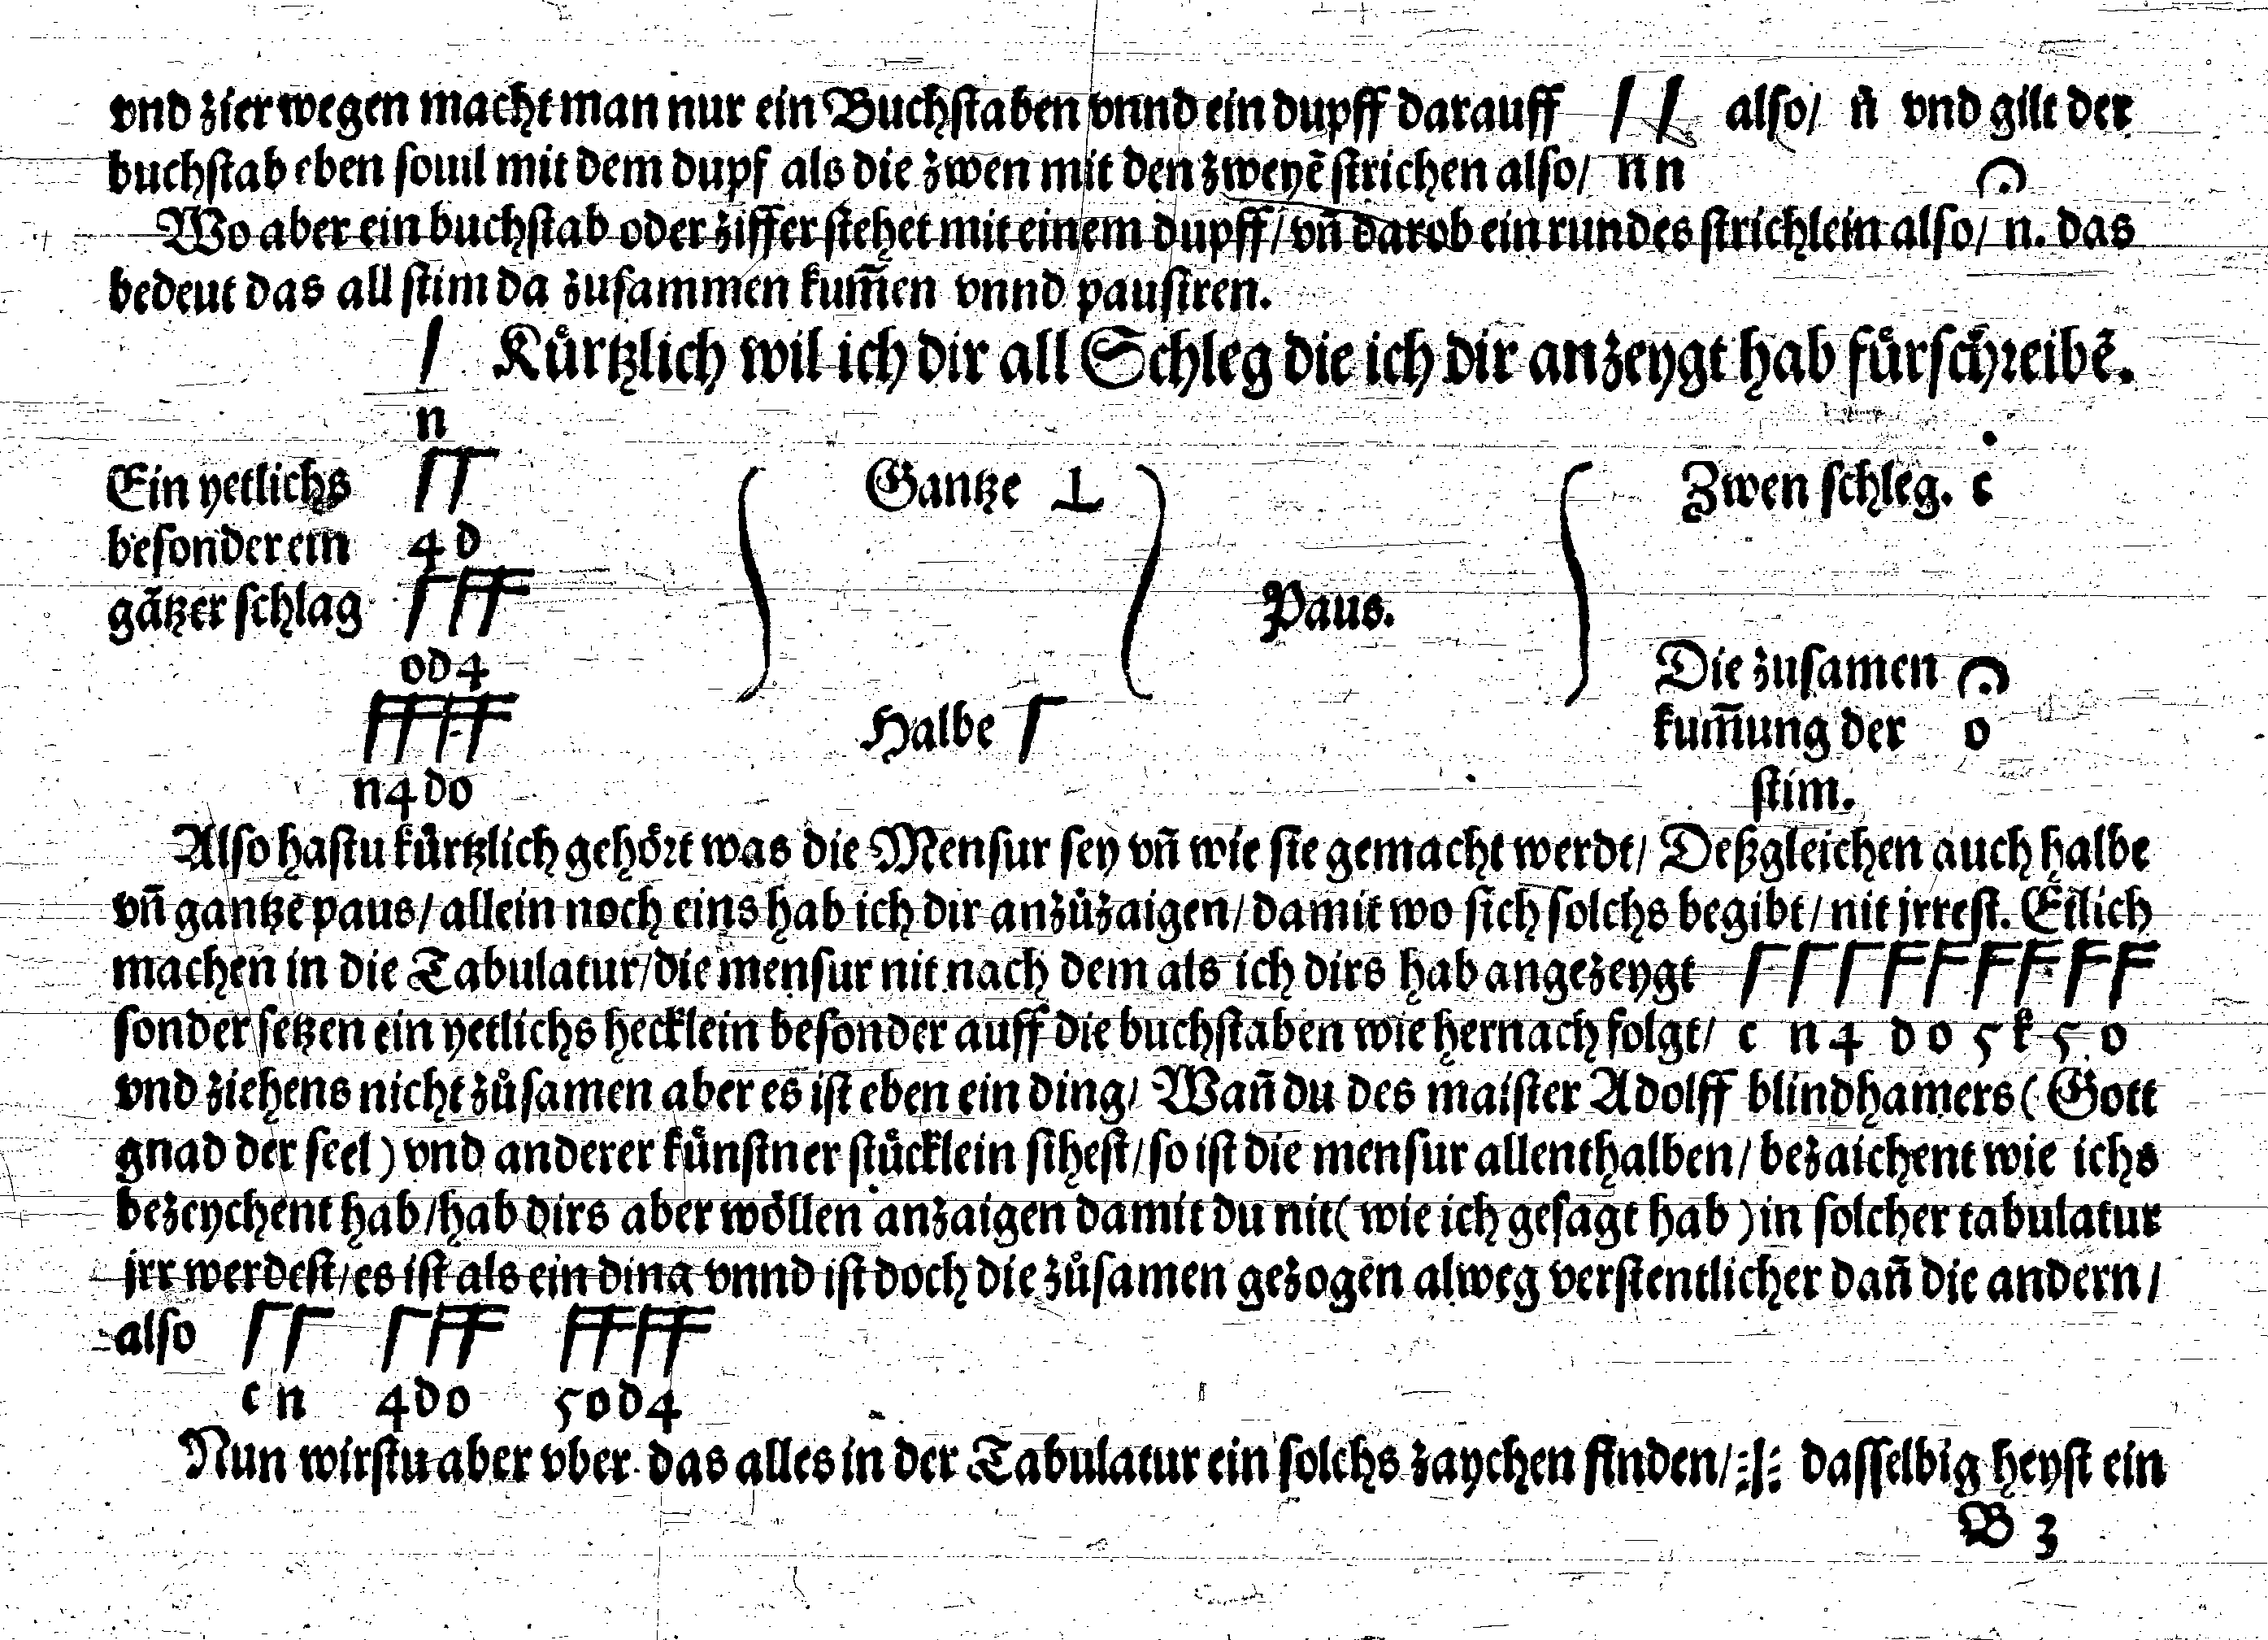 vnd zier wegen macht man nur ein Buchſtaben vnnd ein dupff darauff also/ ṅ vnd gilt der
buchſtab eben ſouil mit dem dupf als die zwen mit den zweyē ſtrichen alſo/ n n
Wo aber ein buchſtab oder ziffer ſtehet mit einem dupff/ vñ darob ein rundes ſtrichlein alſo/ n. das
bedeut das all ſtim da zuſammen kum̄en vnnd pauſiren.
Kuͤrtzlich wil ich dir all Schleg die ich dir anzeygt hab fuͤrſchreibē.
n
Ein yetlichs
beſonder ein
gātzer ſchlag
4 d
o d 4
n 4 d o
Gantze
Halbe
Paus.
Zwen ſchleg. ċ
Die zuſamen
kum̄ung der o
ſtim.
Alſo haſtu kuͤrtzlich gehoͤrt was die Menſur ſey vñ wie ſie gemacht werdt/ Deßgleichen auch halbe
vñ gantzē paus/ allein noch eins hab ich dir anzuͤzaigen/ damit wo ſich ſolchs begibt/ nit jrreſt. Etlich
machen in die Tabulatur/ die menſur nit nach dem als ich dirs hab angezeygt
ſonder ſetzen ein yetlichs hecklein beſonder auff die buchſtaben wie hernach folgt/ c n 4 d o 5 k 5 o
vnd ziehens nicht zuͦſamen aber es iſt eben ein ding/ Wañ du des maiſter Adolff blindhamers ( Gott
gnad der ſeel ) vnd anderer kuͤnſtner ſtuͤcklein ſiheſt/ ſo iſt die menſur allenthalben/ bezaichent wie ichs
bezeychent hab/ hab dirs aber woͤllen anzaigen damit du nit ( wie ich geſagt hab ) in ſolcher tabulatur
jrr werdeſt/ es iſt als ein ding vnnd iſt doch die zuͦſamen gezogen alweg verſtentlicher dañ die andern/
alſo
c n 4 d o 5 o d 4
Nun wirſtu aber vber das alles in der Tabulatur ein ſolchs zaychen finden/ :|: daſſelbig heyſt ein
B 3